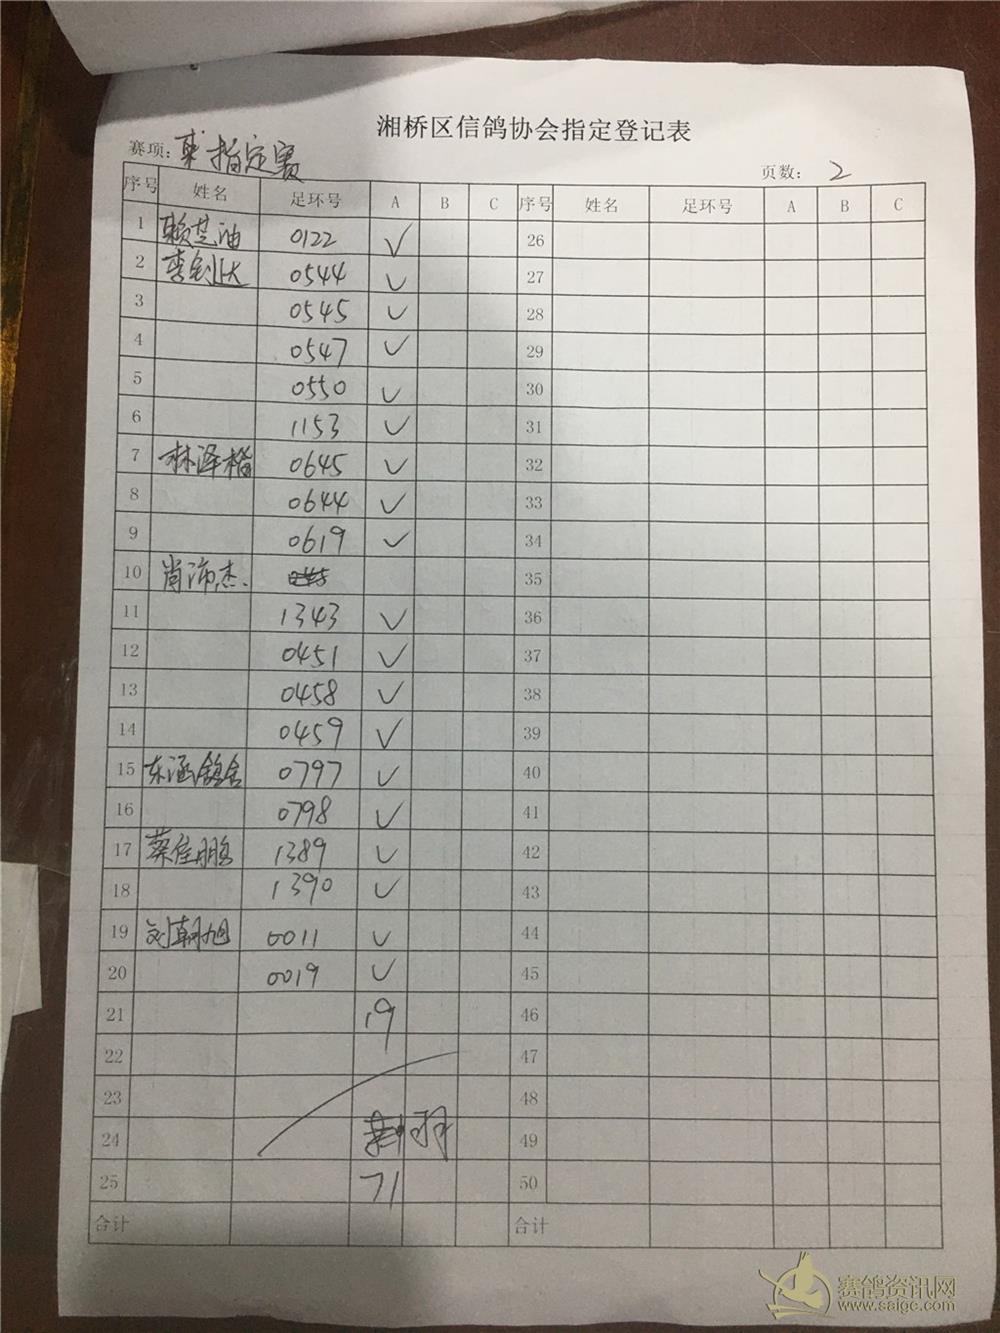 湘桥区信鸽协会指定登记表
赛项: 指定赛 页数: 2
序号 姓名 足环号 A B C 序号 姓名 足环号 A B C
1 赖楚油 0122 ✓ 26
2 李 0544 ✓ 27
3 0545 ✓ 28
4 0547 ✓ 29
5 0550 ✓ 30
6 1153 ✓ 31
7 林泽楷 0645 ✓ 32
8 0644 ✓ 33
9 0619 ✓ 34
10 肖沛杰. 35
11 1343 ✓ 36
12 0451 ✓ 37
13 0458 ✓ 38
14 0459 ✓ 39
15 东涵鸽舍 0797 ✓ 40
16 0798 ✓ 41
17 蔡 鹏 1389 ✓ 42
18 1390 ✓ 43
19 刘朝旭 0011 ✓ 44
20 0019 ✓ 45
21 19 46
22 47
23 48
24 49
25 71 50
合计 合计
赛鸽资讯网
www.saige.com